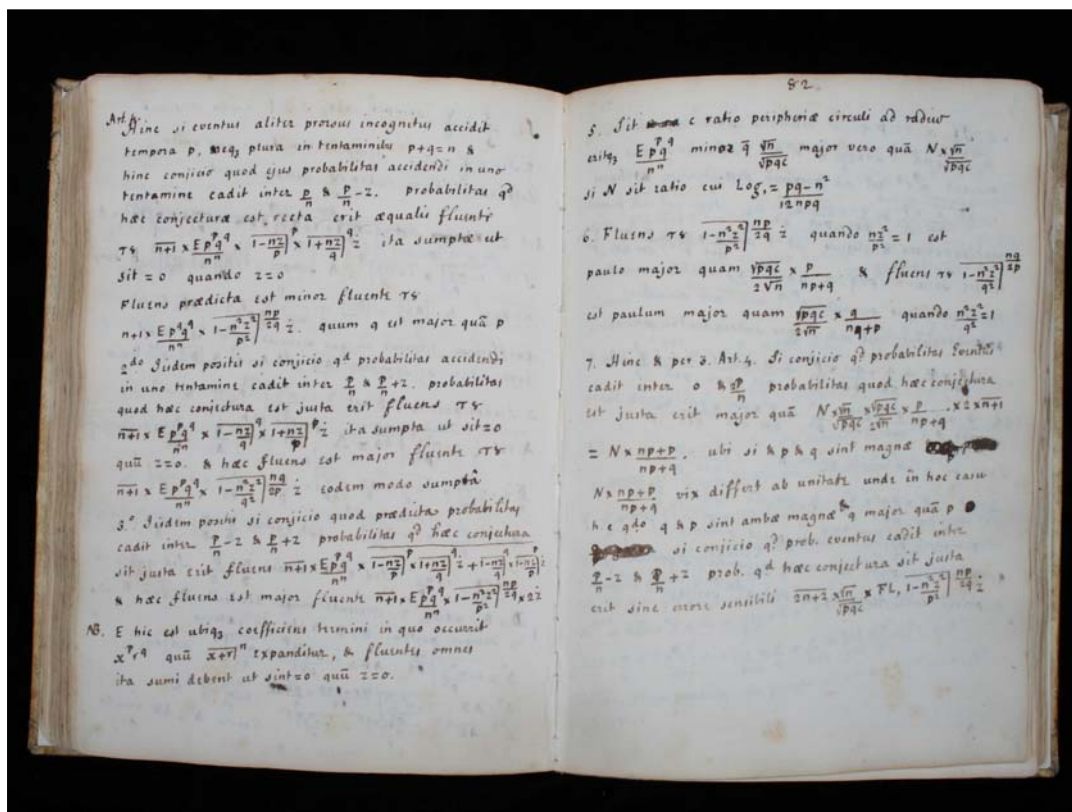 Art. 4.
Hinc si eventus aliter prorsus incognitus accidit
tempora p, neqȝ plura in tentaminibus p+q=n &
hinc conjicio quod ejus probabilitas accidendi in uno
tentamine cadit inter p/n & p/n - z. probabilitas qd
hæc conjectura est recta erit æqualis fluenti
τ8 \overline{n+1} × E p^p q^q / n^n × \overline{1 - nz/p}|^p × \overline{1 + nz/q}|^q ż ita sumptæ ut
sit = 0 quando z=0
Fluens prædicta est minor fluente τ8
n+1 × E p^p q^q / n^n × \overline{1 - n²z²/p²}|^{np/2q} ż. quum q est major quā p
2do Iisdem positis si conjicio qd probabilitas accidendi
in uno tentamine cadit inter p/n & p/n + z. probabilitas
quod hæc conjectura est justa erit fluens τ8
\overline{n+1} × E p^p q^q / n^n × \overline{1 - nz/q}|^q × \overline{1 + nz/p}|^p ż ita sumpta ut sit=0
quū z=0. & hæc fluens est major fluente τ8
\overline{n+1} × E p^p q^q / n^n × \overline{1 - n²z²/q²}|^{nq/2p} ż eodem modo sumptâ
3.° Iisdem positis si conjicio quod prædicta probabilitas
cadit inter p/n - z & p/n + z probabilitas qd hæc conjectura
sit justa erit fluens \overline{n+1} × E p^p q^q / n^n × \overline{1 - nz/p}|^p × \overline{1 + nz/q}|^q ż + \overline{1 - nz/q}|^q × \overline{1 + nz/p}|^p ż
& hæc fluens est major fluente \overline{n+1} × E p^p q^q / n^n × \overline{1 - n²z²/p²}|^{np/2q} × 2ż
NB. E hic est ubiqȝ coefficiens termini in quo occurrit
x^p r^q quū \overline{x+r}|^n expanditur, & fluentes omnes
ita sumi debent ut sint=0 quū z=0.
82
5. Sit c ratio peripheriæ circuli ad radius
eritqȝ E p^p q^q / n^n minor q̄ √n / √pqc major vero quā N × √n / √pqc
si N sit ratio cui Log, = pq - n² / 12npq
6. Fluens τ8 \overline{1 - n²z²/p²}|^{np/2q} ż quando nz²/p² = 1 est
paulo major quam √pqc / 2√n × p / np+q & fluens τ8 \overline{1 - n²z²/q²}|^{nq/2p}
est paulum major quam √pqc / 2√n × q / nq+p quando n²z²/q² = 1
7. Hinc & per 3. Art. 4. Si conjicio qd probabilitas Eventus
cadit inter 0 & 2p/n probabilitas quod hæc conjectura
est justa erit major quā N × √n / √pqc × √pqc / 2√n × p / np+q × 2 × \overline{n+1}
= N × np+p / np+q. ubi si & p & q sint magnæ
N × np+p / np+q vix differt ab unitate unde in hoc casu
h.e qdo q & p sint ambæ magnæ & q major quā p
si conjicio qd prob. eventus cadit inter
p/n - z & p/n + z prob. qd hæc conjectura sit justa
erit sine errore sensibili \overline{2n+2} × √n / √pqc × FL, \overline{1 - n²z²/p²}|^{np/2q} ż